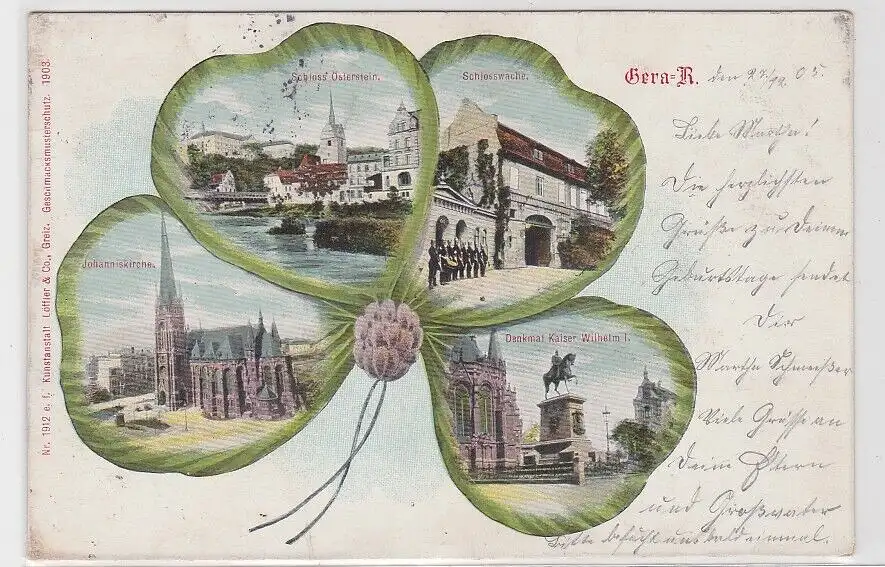 Nr. 1912 e. f. Kunstanstalt Löffler & Co., Greiz. Geschmacksmusterschutz. 1903.
Schloss Österstein.
Schlosswache.
Johanniskirche.
Denkmal Kaiser Wilhelm I.
Gera-R. den 27/12. 05.
Liebe Martha!
Die herzlichsten
Grüße zu Deinem
Geburtstage sendet
Dir
Martha Schmeißer
Viele Grüsse an
Deine Eltern
und Großvater
Bitte besucht uns bald einmal.